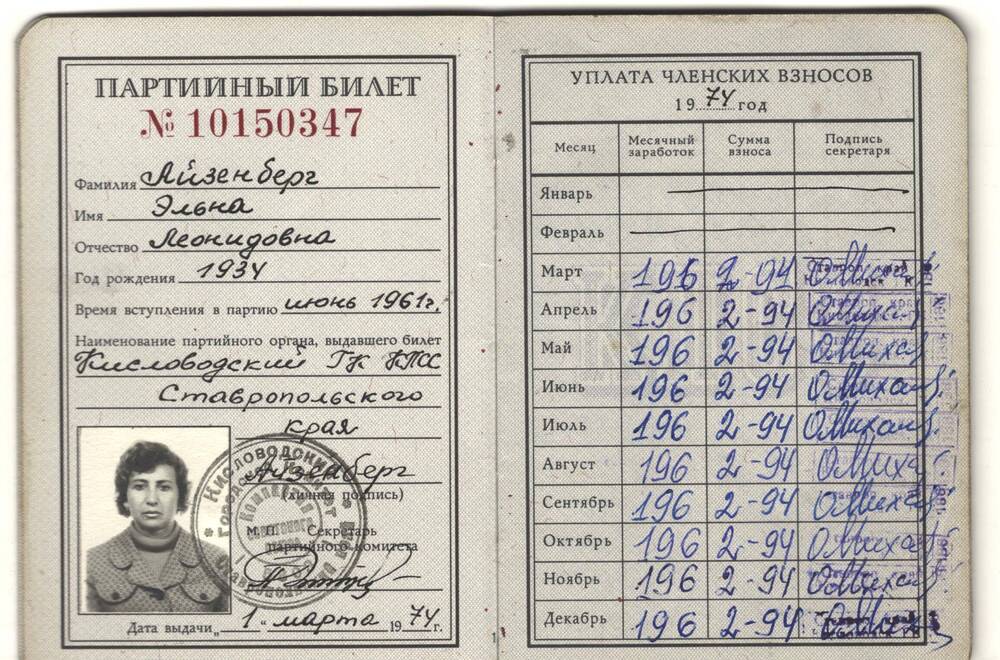 ПАРТИЙНЫЙ БИЛЕТ
№ 10150347
Фамилия Айзенберг
Имя Эльна
Отчество Леонидовна
Год рождения 1934
Время вступления в партию июнь 1961г.
Наименование партийного органа, выдавшего билет
Кисловодский ГК КПСС
Ставропольского
края
Айзенберг
(личная подпись)
М. П. Секретарь
партийного комитета
Дата выдачи „ 1 “ марта 1974 г.
УПЛАТА ЧЛЕНСКИХ ВЗНОСОВ
1974 год
Месяц Месячный заработок Сумма взноса Подпись секретаря
Январь
Февраль
Март 196 2-94
Апрель 196 2-94
Май 196 2-94
Июнь 196 2-94
Июль 196 2-94
Август 196 2-94
Сентябрь 196 2-94
Октябрь 196 2-94
Ноябрь 196 2-94
Декабрь 196 2-94